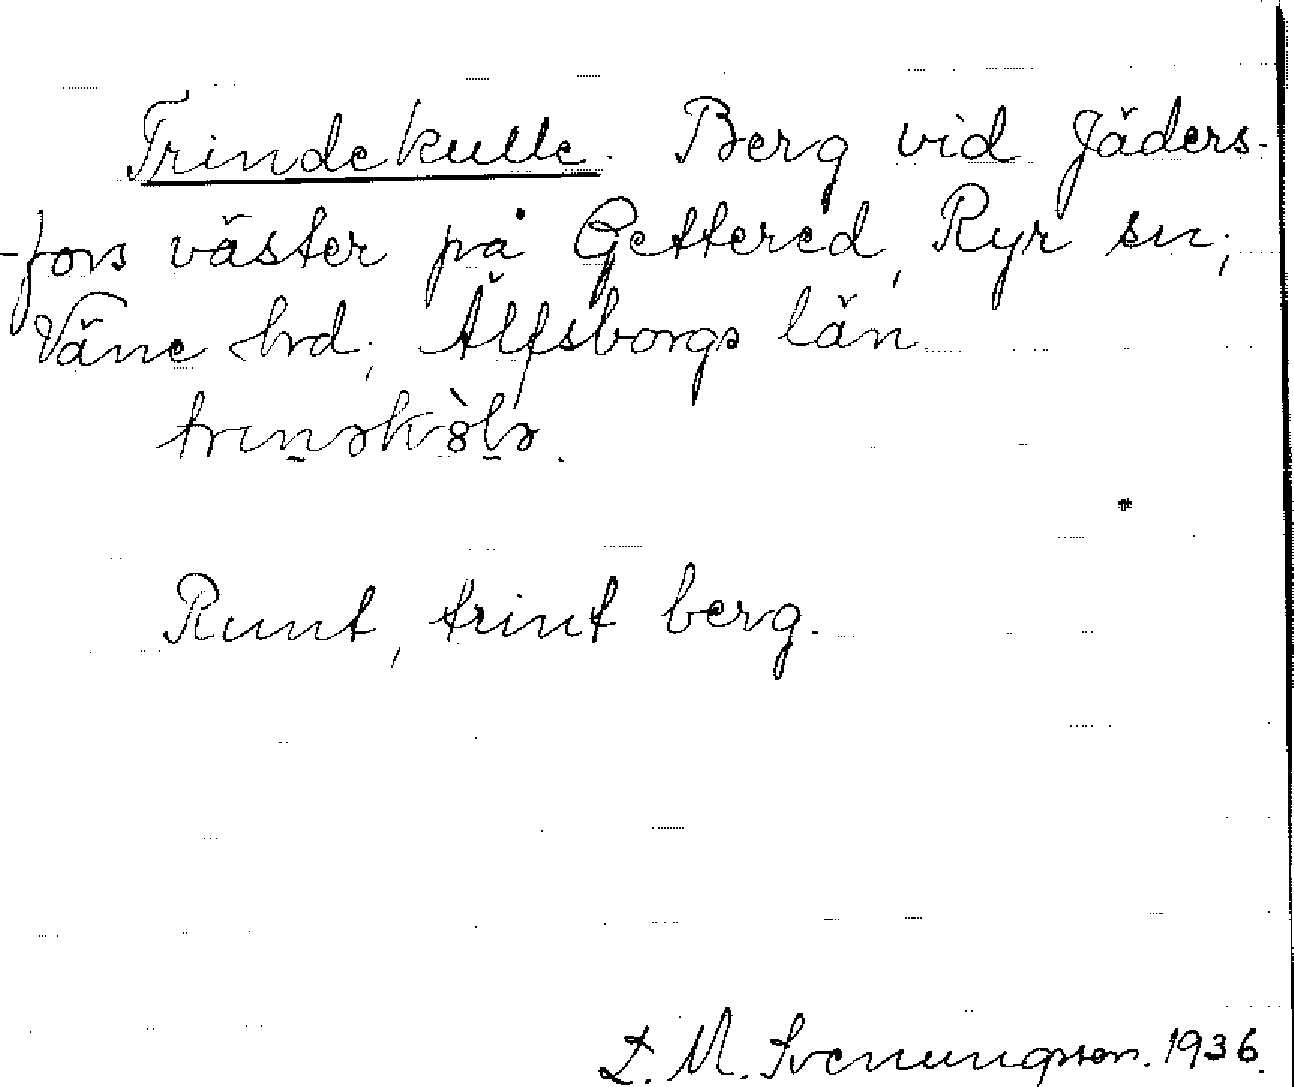 Trindekulle. Berg vid Jäders-
-fors väster på Gettered, Ryr sn;
Väne hrd; Älfsborgs län
Runt, trint berg.
L. M. Svenungsson. 1936.